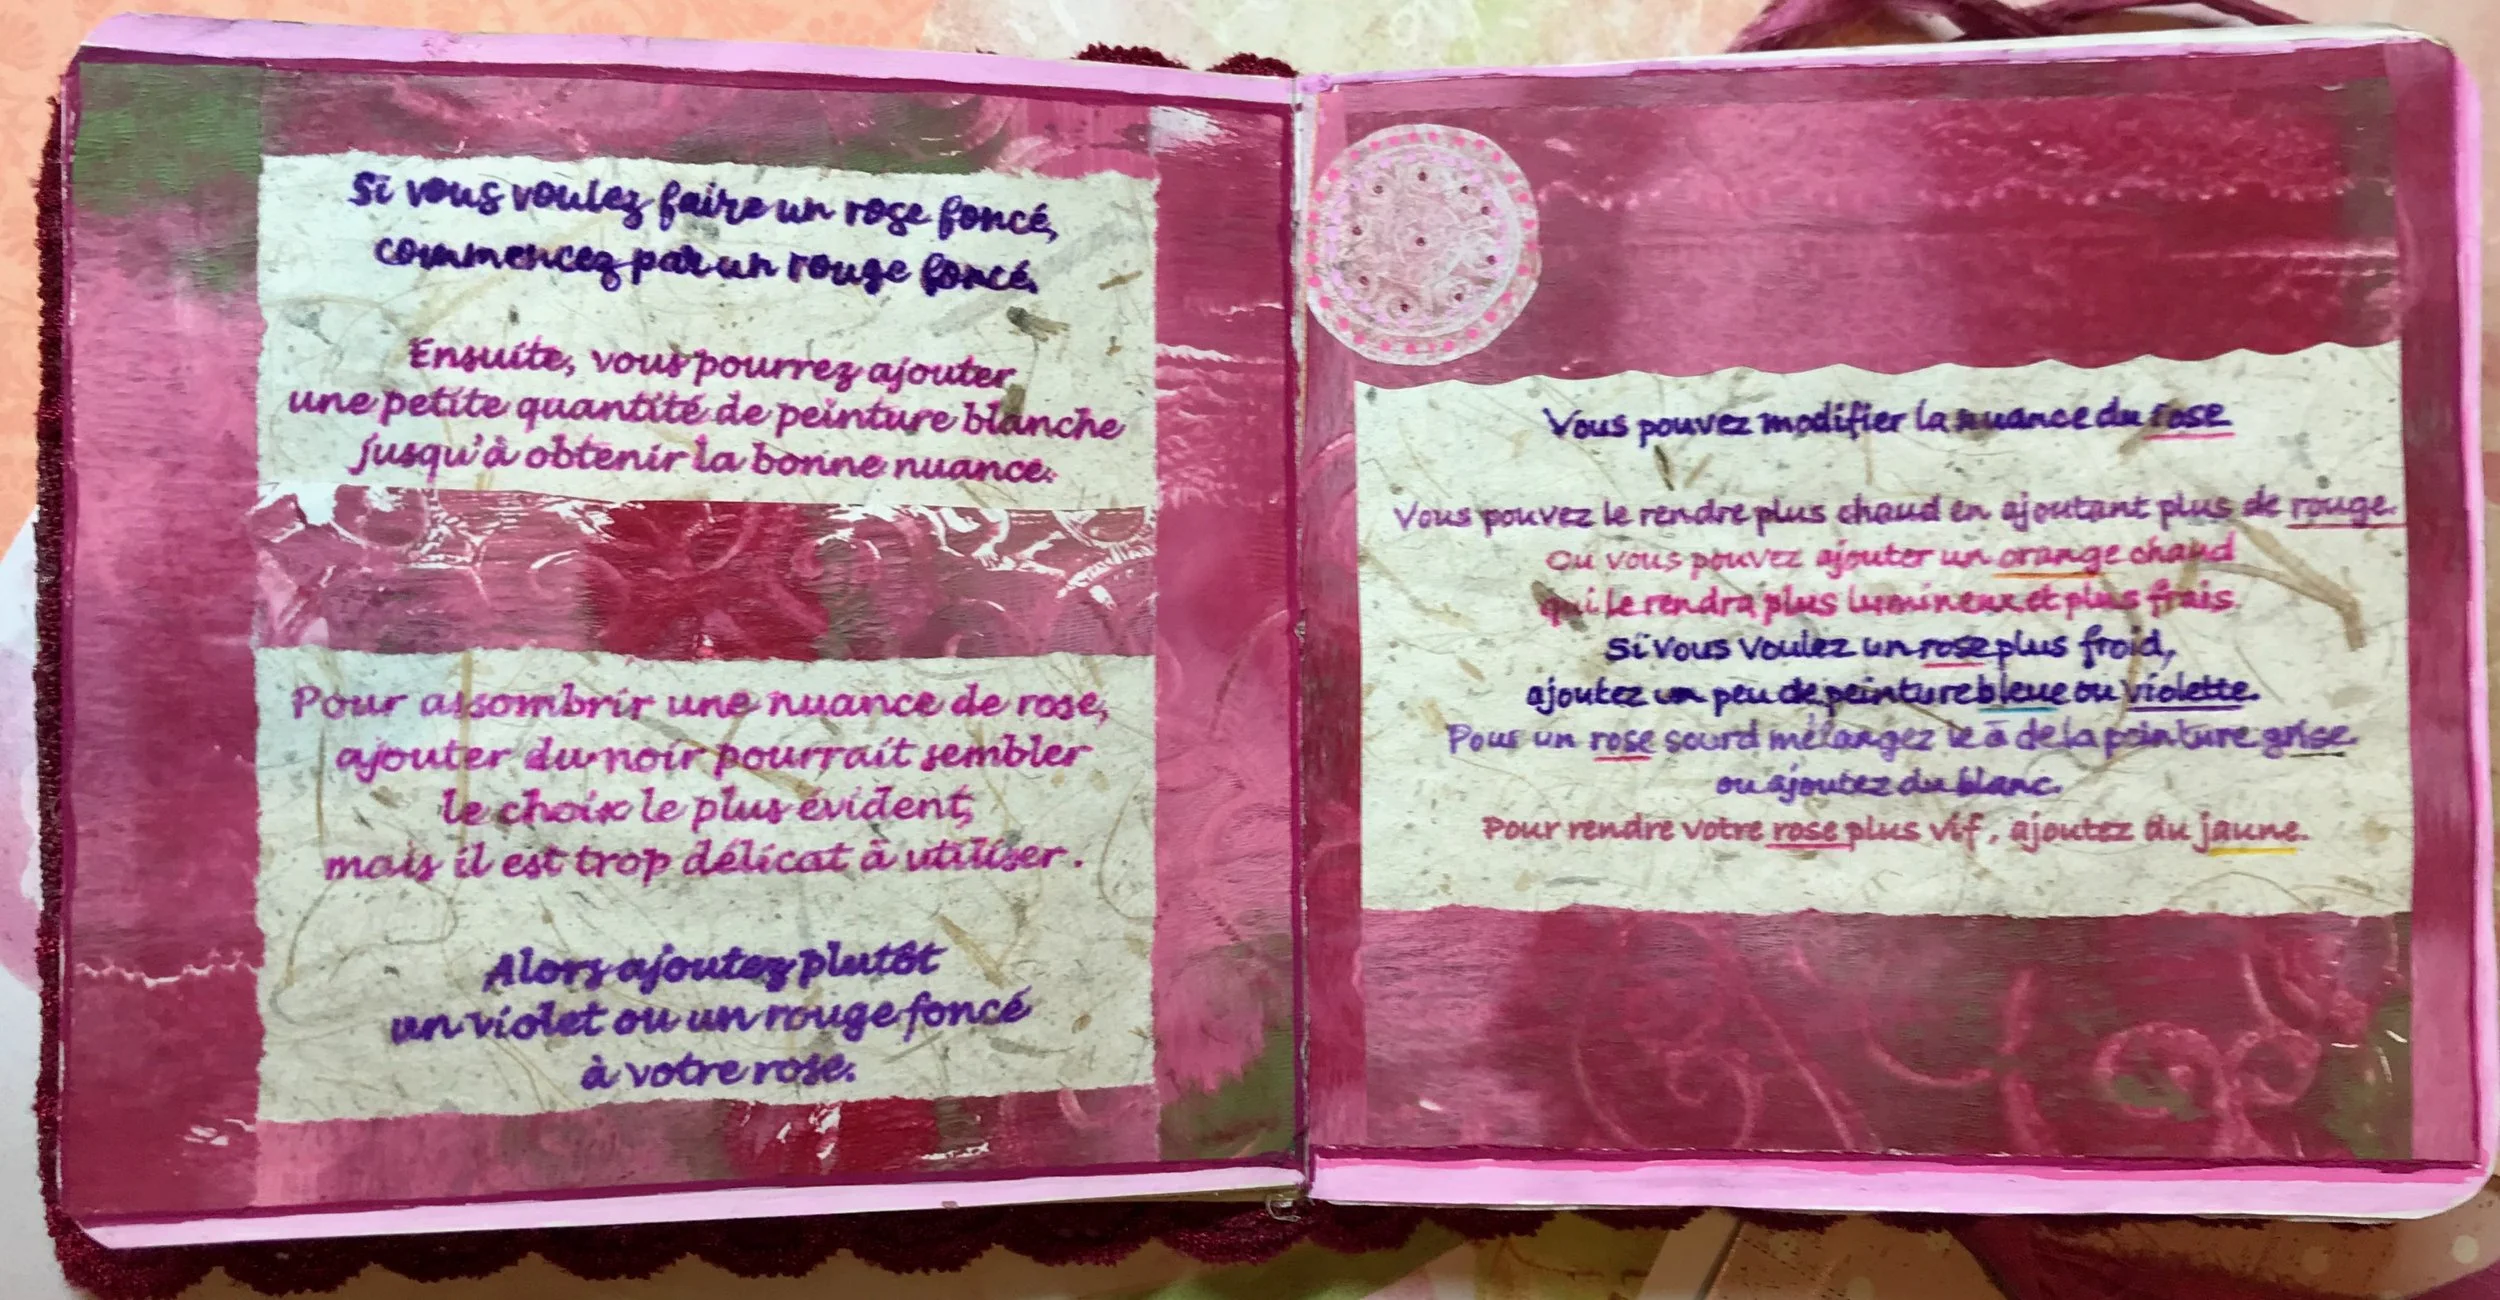 Si vous voulez faire un rose foncé,
commencez par un rouge foncé.
Ensuite, vous pourrez ajouter
une petite quantité de peinture blanche
jusqu'à obtenir la bonne nuance.
Pour assombrir une nuance de rose,
ajouter du noir pourrait sembler
le choix le plus évident,
mais il est trop délicat à utiliser.
Alors ajoutez plutôt
un violet ou un rouge foncé
à votre rose.
Vous pouvez modifier la nuance du rose
Vous pouvez le rendre plus chaud en ajoutant plus de rouge.
Ou vous pouvez ajouter un orange chaud
qui le rendra plus lumineux et plus frais
Si vous voulez un rose plus froid,
ajoutez un peu de peinture bleue ou violette.
Pour un rose sourd mélangez le à de la peinture grise.
ou ajoutez du blanc.
Pour rendre votre rose plus vif, ajoutez du jaune.